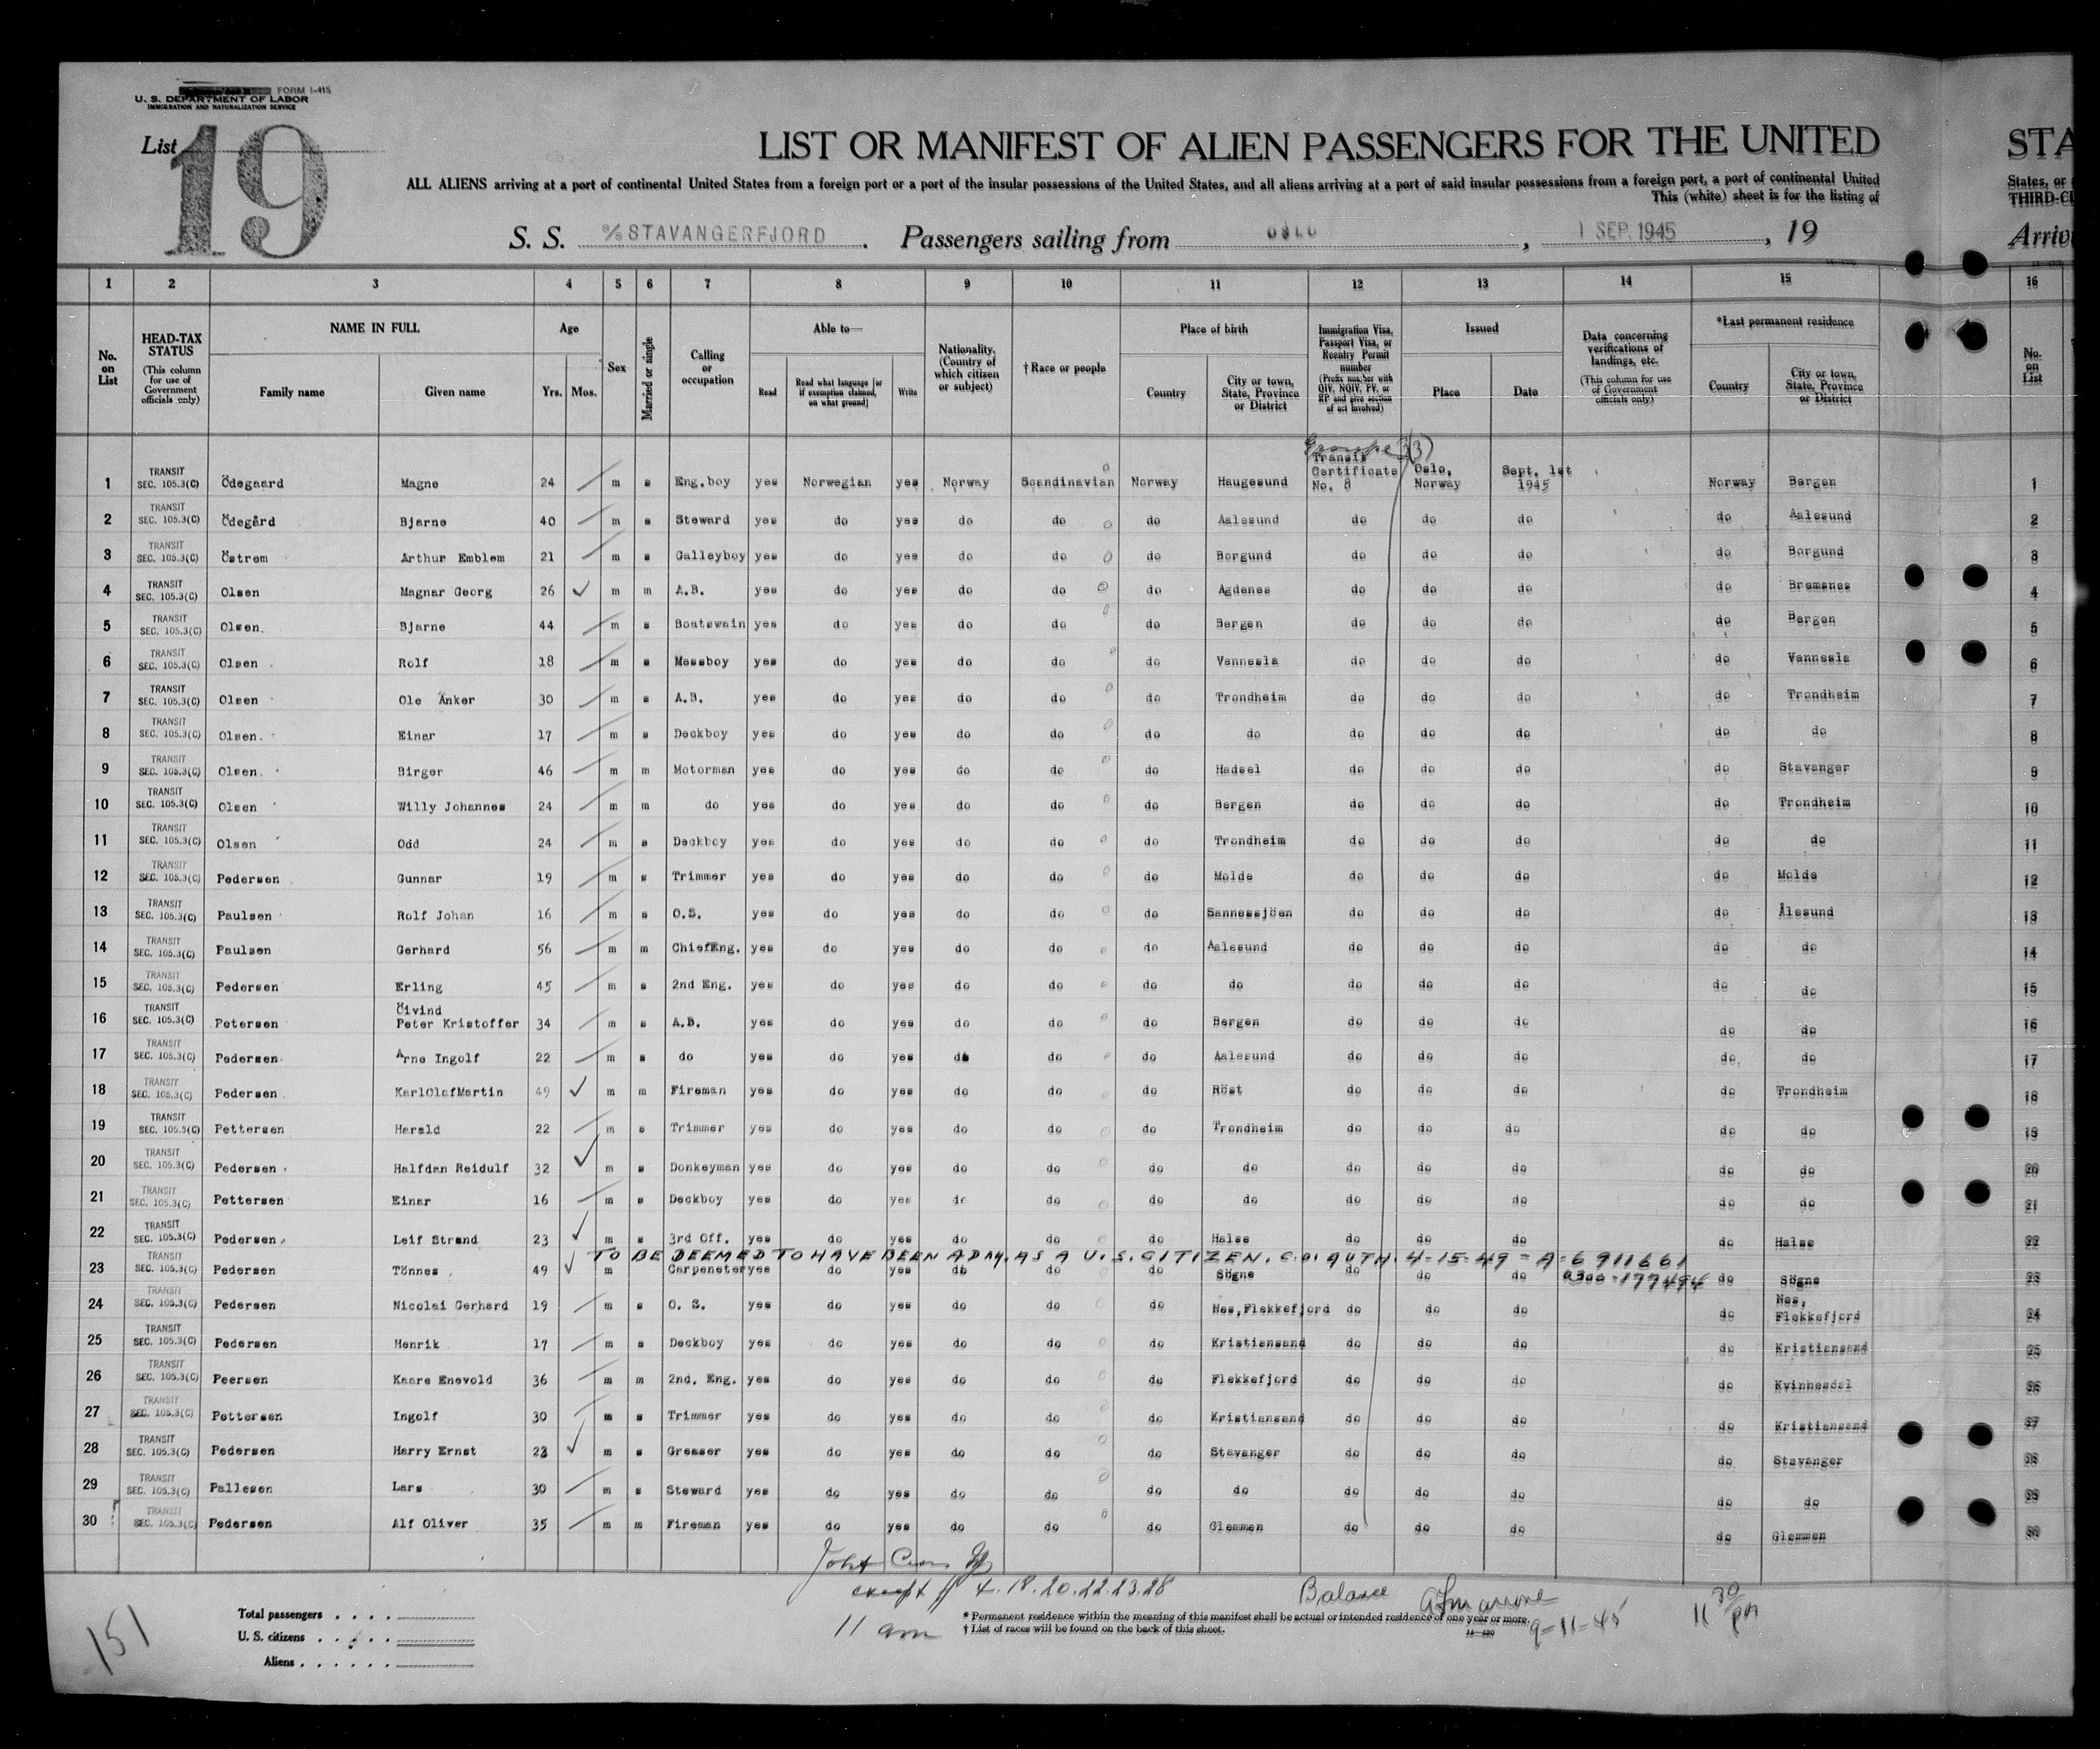 FORM I-415
U. S. DEPARTMENT OF LABOR
IMMIGRATION AND NATURALIZATION SERVICE
List 19
LIST OR MANIFEST OF ALIEN PASSENGERS FOR THE UNITED STA
ALL ALIENS arriving at a port of continental United States from a foreign port or a port of the insular possessions of the United States, and all aliens arriving at a port of said insular possessions from a foreign port, a port of continental United States, or
This (white) sheet is for the listing of THIRD-CL
S. S. S/S STAVANGERFJORD. Passengers sailing from OSLO, 1 SEP. 1945, 19 Arriv
1 2 3 4 5 6 7 8 9 10 11 12 13 14 15 16
No. on List
HEAD-TAX STATUS (This column for use of Government officials only)
NAME IN FULL Family name Given name
Age Yrs. Mos.
Sex
Married or single
Calling or occupation
Able to— Read Read what language [or if exemption claimed, on what ground] Write
Nationality. (Country of which citizen or subject)
† Race or people
Place of birth Country City or town, State, Province or District
Immigration Visa, Passport Visa, or Reentry Permit number (Prefix number with QIV, NQIV, PV, or RP and give section of act involved)
Issued Place Date
Data concerning verifications of landings, etc. (This column for use of Government officials only)
*Last permanent residence Country City or town, State, Province or District
No. on List
3(3)
1 TRANSIT SEC. 105.3(C) Ödegaard Magne 24 m s Eng.boy yes Norwegian yes Norway Scandinavian Norway Haugesund Transit Certificate No. 8 Oslo, Norway Sept. 1st 1945 Norway Bergen 1
2 TRANSIT SEC. 105.3(C) Ödegård Bjarne 40 m s Steward yes do yes do do do Aalesund do do do do Aalesund 2
3 TRANSIT SEC. 105.3(C) Östrem Arthur Emblem 21 m s Galleyboy yes do yes do do do Borgund do do do do Borgund 3
4 TRANSIT SEC. 105.3(C) Olsen Magnar Georg 26 ✓ m m A.B. yes do yes do do do Agdenes do do do do Bremsnes 4
5 TRANSIT SEC. 105.3(C) Olsen. Bjarne 44 m s Boatswain yes do yes do do do Bergen do do do do Bergen 5
6 TRANSIT SEC. 105.3(C) Olsen Rolf 18 m s Messboy yes do yes do do do Vennesla do do do do Vennesla 6
7 TRANSIT SEC. 105.3(C) Olsen Ole Anker 30 m s A.B. yes do yes do do do Trondheim do do do do Trondheim 7
8 TRANSIT SEC. 105.3(C) Olsen. Einar 17 m s Deckboy yes do yes do do do do do do do do do 8
9 TRANSIT SEC. 105.3(C) Olsen. Birger 46 m m Motorman yes do yes do do do Hadsel do do do do Stavanger 9
10 TRANSIT SEC. 105.3(C) Olsen Willy Johannes 24 m m do yes do yes do do do Bergen do do do do Trondheim 10
11 TRANSIT SEC. 105.3(C) Olsen Odd 24 m s Deckboy yes do yes do do do Trondheim do do do do do 11
12 TRANSIT SEC. 105.3(C) Pedersen Gunnar 19 m s Trimmer yes do yes do do do Molde do do do do Molde 12
13 TRANSIT SEC. 105.3(C) Paulsen Rolf Johan 16 m s O.S. yes do yes do do do Sannessjöen do do do do Ålesund 13
14 TRANSIT SEC. 105.3(C) Paulsen Gerhard 56 m m ChiefEng. yes do yes do do do Aalesund do do do do do 14
15 TRANSIT SEC. 105.3(C) Pedersen Erling 45 m s 2nd Eng. yes do yes do do do do do do do do do 15
16 TRANSIT SEC. 105.3(C) Petersen Öivind Peter Kristoffer 34 m s A.B. yes do yes do do do Bergen do do do do do 16
17 TRANSIT SEC. 105.3(C) Pedersen Arne Ingolf 22 m s do yes do yes do do do Aalesund do do do do do 17
18 TRANSIT SEC. 105.3(C) Pedersen KarlOlafMartin 49 ✓ m m Fireman yes do yes do do do Röst do do do do Trondheim 18
19 TRANSIT SEC. 105.3(C) Pettersen Harald 22 m s Trimmer yes do yes do do do Trondheim do do do do do 19
20 TRANSIT SEC. 105.3(C) Pedersen Halfdan Reidulf 32 ✓ m s Donkeyman yes do yes do do do do do do do do do 20
21 TRANSIT SEC. 105.3(C) Pettersen Einar 16 m s Deckboy yes do yes do do do do do do do do do 21
22 TRANSIT SEC. 105.3(C) Pedersen Leif Strand 23 ✓ m s 3rd Off. yes do yes do do do Halse do do do do Halse 22
TO BE DEEMED TO HAVE BEEN ADM. AS A U.S. CITIZEN. C.O. AUTH. 4-15-49 - A-6 911661
23 TRANSIT SEC. 105.3(C) Pedersen Tönnes 49 ✓ m Carpeneter yes do yes do do do Sögne do do do 0300-177494 do Sögne 23
24 TRANSIT SEC. 105.3(C) Pedersen Nicolai Gerhard 19 m s O. S. yes do yes do do do Nes,Flekkefjord do do do do Nes, Flekkefjord 24
25 TRANSIT SEC. 105.3(C) Pedersen Henrik 17 m s Deckboy yes do yes do do do Kristiansand do do do do Kristiansand 25
26 TRANSIT SEC. 105.3(C) Peersen Kaare Enevold 36 m m 2nd. Eng. yes do yes do do do Flekkefjord do do do do Kvinhesdal 26
27 TRANSIT SEC. 105.3(C) Pettersen Ingolf 30 m s Trimmer yes do yes do do do Kristiansand do do do do Kristiansand 27
28 TRANSIT SEC. 105.3(C) Pedersen Harry Ernst 23 ✓ m s Greaser yes do yes do do do Stavanger do do do do Stavanger 28
29 TRANSIT SEC. 105.3(C) Pallesen Lars 30 m s Steward yes do yes do do do do do do do do do 29
30 TRANSIT SEC. 105.3(C) Pedersen Alf Oliver 35 m m Fireman yes do yes do do do Glemmen do do do do Glemmen 30
except # 4.18.20.22.23.28 Balance
11 am 9-11-45 11 30 pm
151
Total passengers
U. S. citizens
Aliens
* Permanent residence within the meaning of this manifest shall be actual or intended residence of one year or more.
† List of races will be found on the back of this sheet.